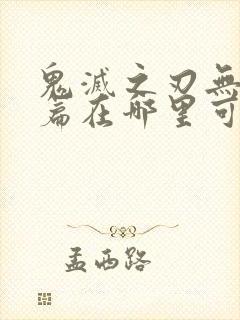 鬼滅之刃無
篇在哪里可
孟西路